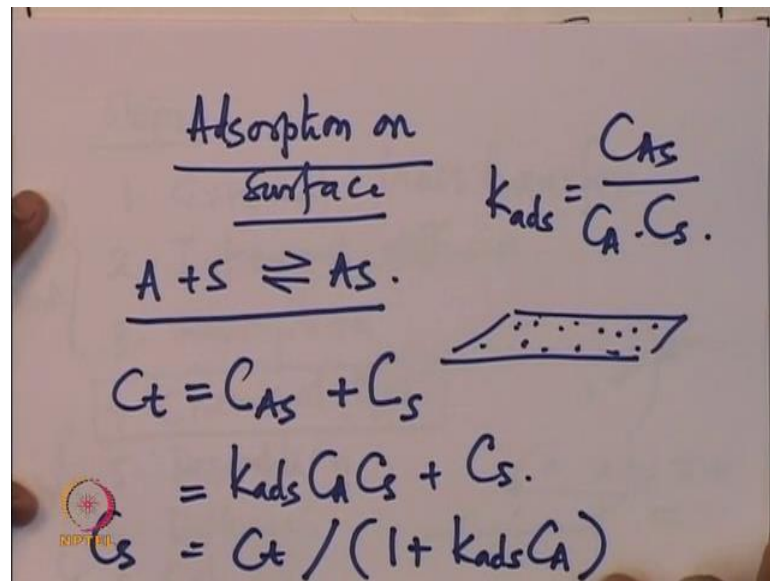 Adsorption on
surface
A + S ⇌ AS.
kads = CAS / CA . CS .
Ct = CAS + CS
= kads CA CS + CS .
CS = Ct / (1 + kads CA)
NPTEL